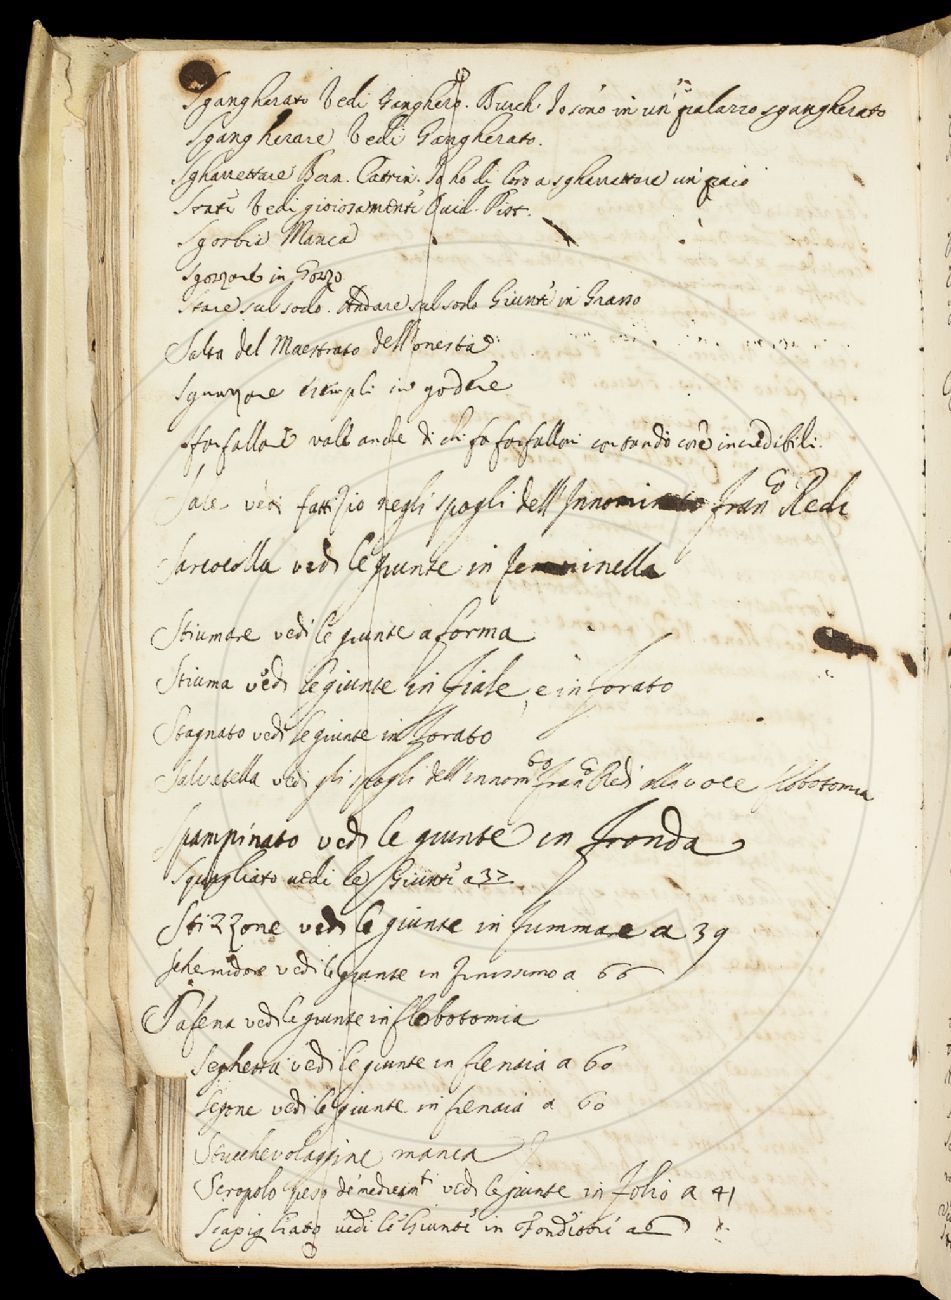 Sgangherato Vedi Ganghero. Burch. Io sono in un palazzo sgangherato
Sgangherare Vedi Gangherato.
Sgharrettare Bern. Catrin. Io ho di loro a sgherrettare un paio
Vedi gioiosamente Ovid. Pist.
Sgorbia Manca
Sgozzare in Gozzo
Stare sul sodo. Andare sul sodo Giunte in Grasso
Salta del Maestrato dell'onestà
Sguazzare esempli in godere
Sfarfallare vale anche di chi fa farfalloni contando cose incredibili.
Sale vedi fattizio negli spogli dell'Innominato Fran.co Redi
Sarcocolla vedi le giunte in femminella
Stiumare vedi le giunte a forma
Stiuma vedi le giunte in fiale, e in forato
Stagnato vedi le giunte in forato
Salvatella vedi gli spogli dell'innom.to Fran.co Redi alla voce flobotomia
Spampinato vedi le giunte in fronda
Squagliato vedi le Giunte a 37.
Stizzone vedi le giunte in fummare a 39
Schermidore vedi le giunte in finissimo a 66
Safena vedi le giunte in flobotomia
Seghetta vedi le giunte in fienaia a 60
Segone vedi le giunte in fienaia a 60
Stucchevolaggine manca
Scropolo peso de' medicam.ti vedi le giunte in folio a 41
Scapigliato vedi le Giunte in a 6